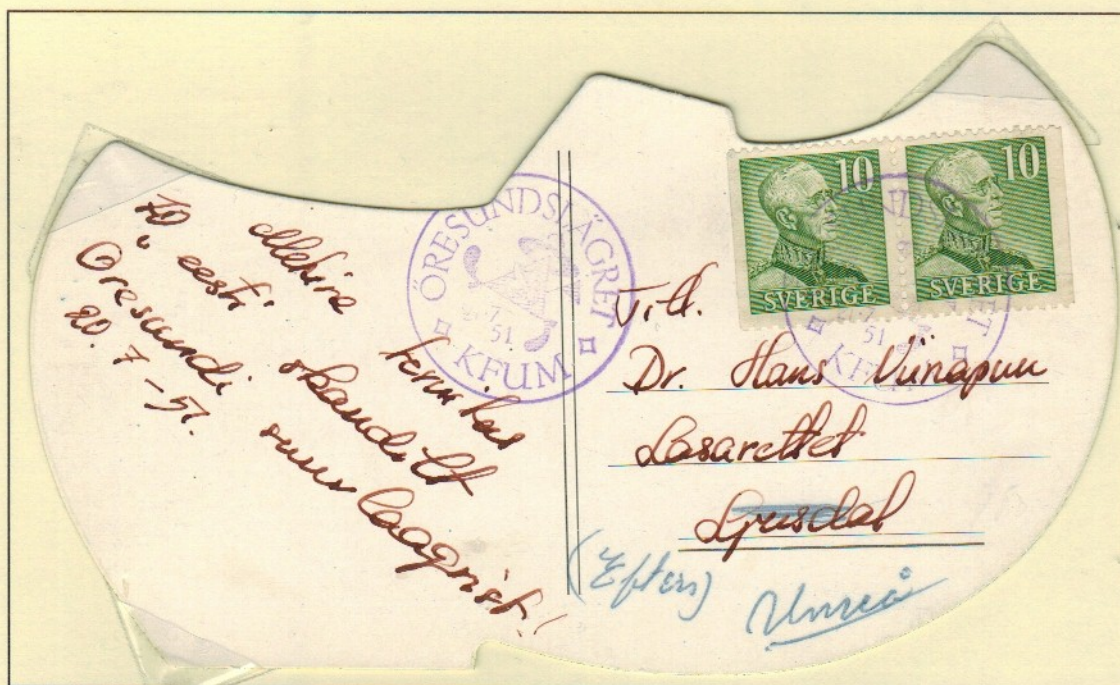 10
eesti skandilt
Öresundi suurlaagrist!
20. 7 - 51.
ÖRESUNDSLÄGRET
51
KFUM
10
SVERIGE
10
SVERIGE
51
KFUM
V.A.
Dr. Hans Viinapuu
Lasarettet
Ljusdal
(Efters)
Umeå